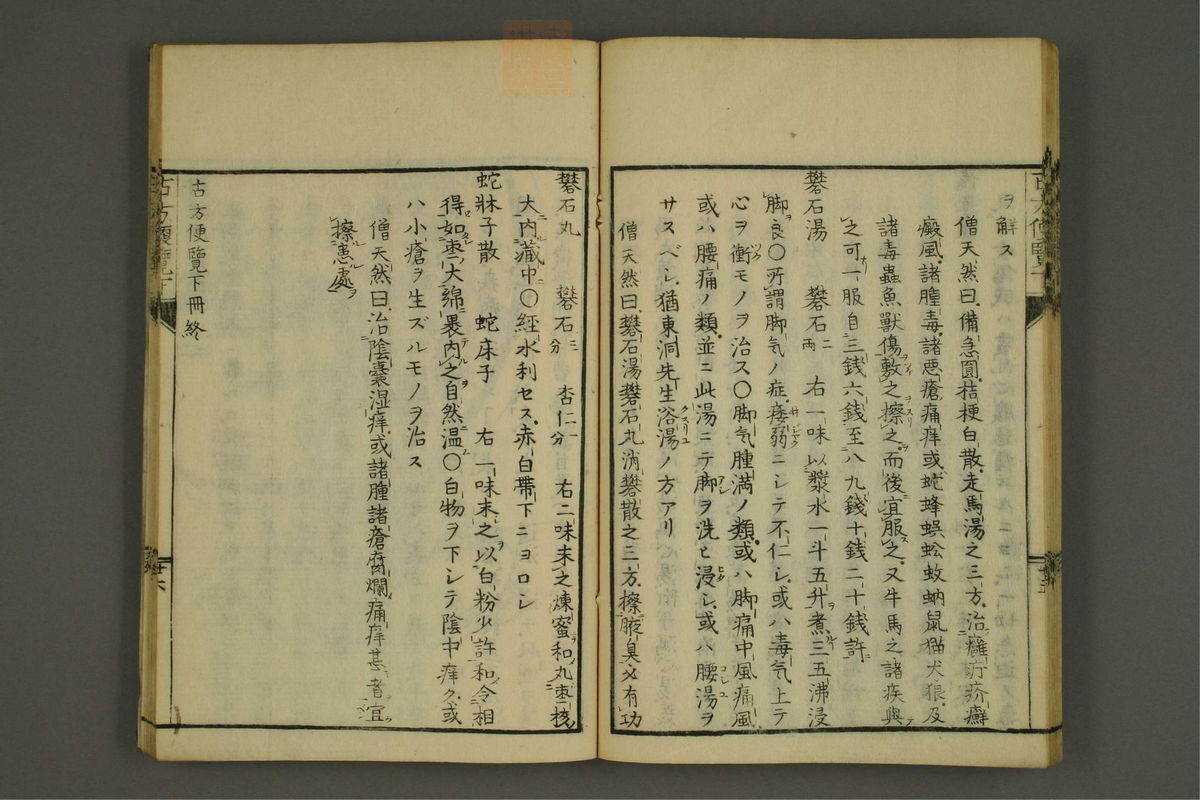 ヲ解ス
僧天然曰備急圓桔梗白散走馬湯之三方治癰疔疥癬
癜風諸腫毒諸悪瘡痛痒或蛇蜂蜈蚣蚊蚋鼠猫犬狼及
諸毒蟲魚獸傷敷之擦之而後宜服之又牛馬之諸疾與
之可一服自三銭六銭至八九銭十銭二十銭許
礬石湯 礬石二兩 右一味以漿水一斗五升煮三五沸浸
脚良〇所謂脚気ノ症痿弱ニシテ不仁シ或ハ毒気上テ
心ヲ衝モノヲ治ス〇脚気腫満ノ類或ハ脚痛中風痛風
或ハ腰痛ノ類並ニ此湯ニテ脚ヲ洗ヒ浸シ或ハ腰湯ヲ
サスベシ猶東洞先生浴湯ノ方アリ
僧天然曰礬石湯礬石丸消礬散之三方擦腋臭必有功
礬石丸 礬石三分 杏仁一分 右二味末之煉蜜和丸棗核
大内藏中〇經水利セス赤白帶下ニヨロシ
蛇牀子散 蛇床子 右一味末之以白粉少許和令相
得如棗大綿裹内之自然温〇白物ヲ下シテ陰中痒ク或
ハ小瘡ヲ生ズルモノヲ治ス
僧天然曰治陰嚢湿痒或諸腫諸瘡腐爛痛痒甚者宜
擦患處
古方便覽下冊終